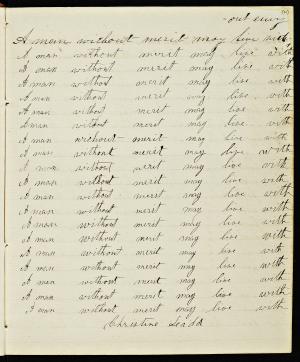 out envy
A man without merit may live with
A man without merit may live with
A man without merit may live with
A man without merit may live with
A man without merit may live with
A man without merit may live with
A man without merit may live with
A man without merit may live with
A man without merit may live with
A man without merit may live with
A man without merit may live with
A man without merit may live with
A man without merit may live with
A man without merit may live with
A man without merit may live with
A man without merit may live with
A man without merit may live with
A man without merit may live with
A man without merit may live with
A man without merit may live with
Christine Ladd